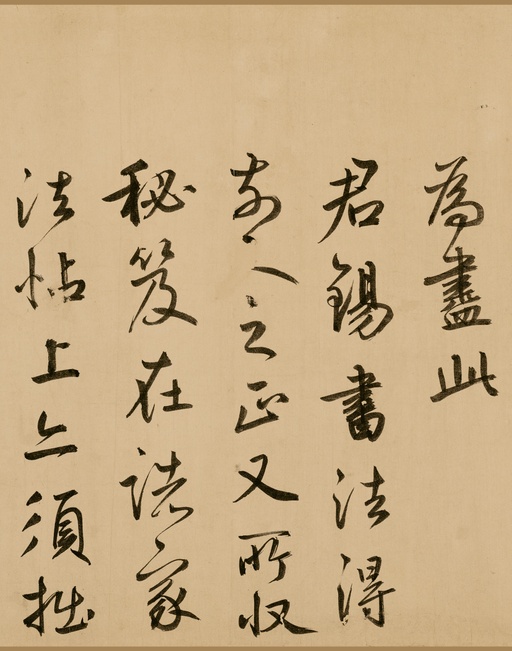 為盡此
君錫書法得
前人之正又所収
秘笈在諸家
法帖上亦須拙